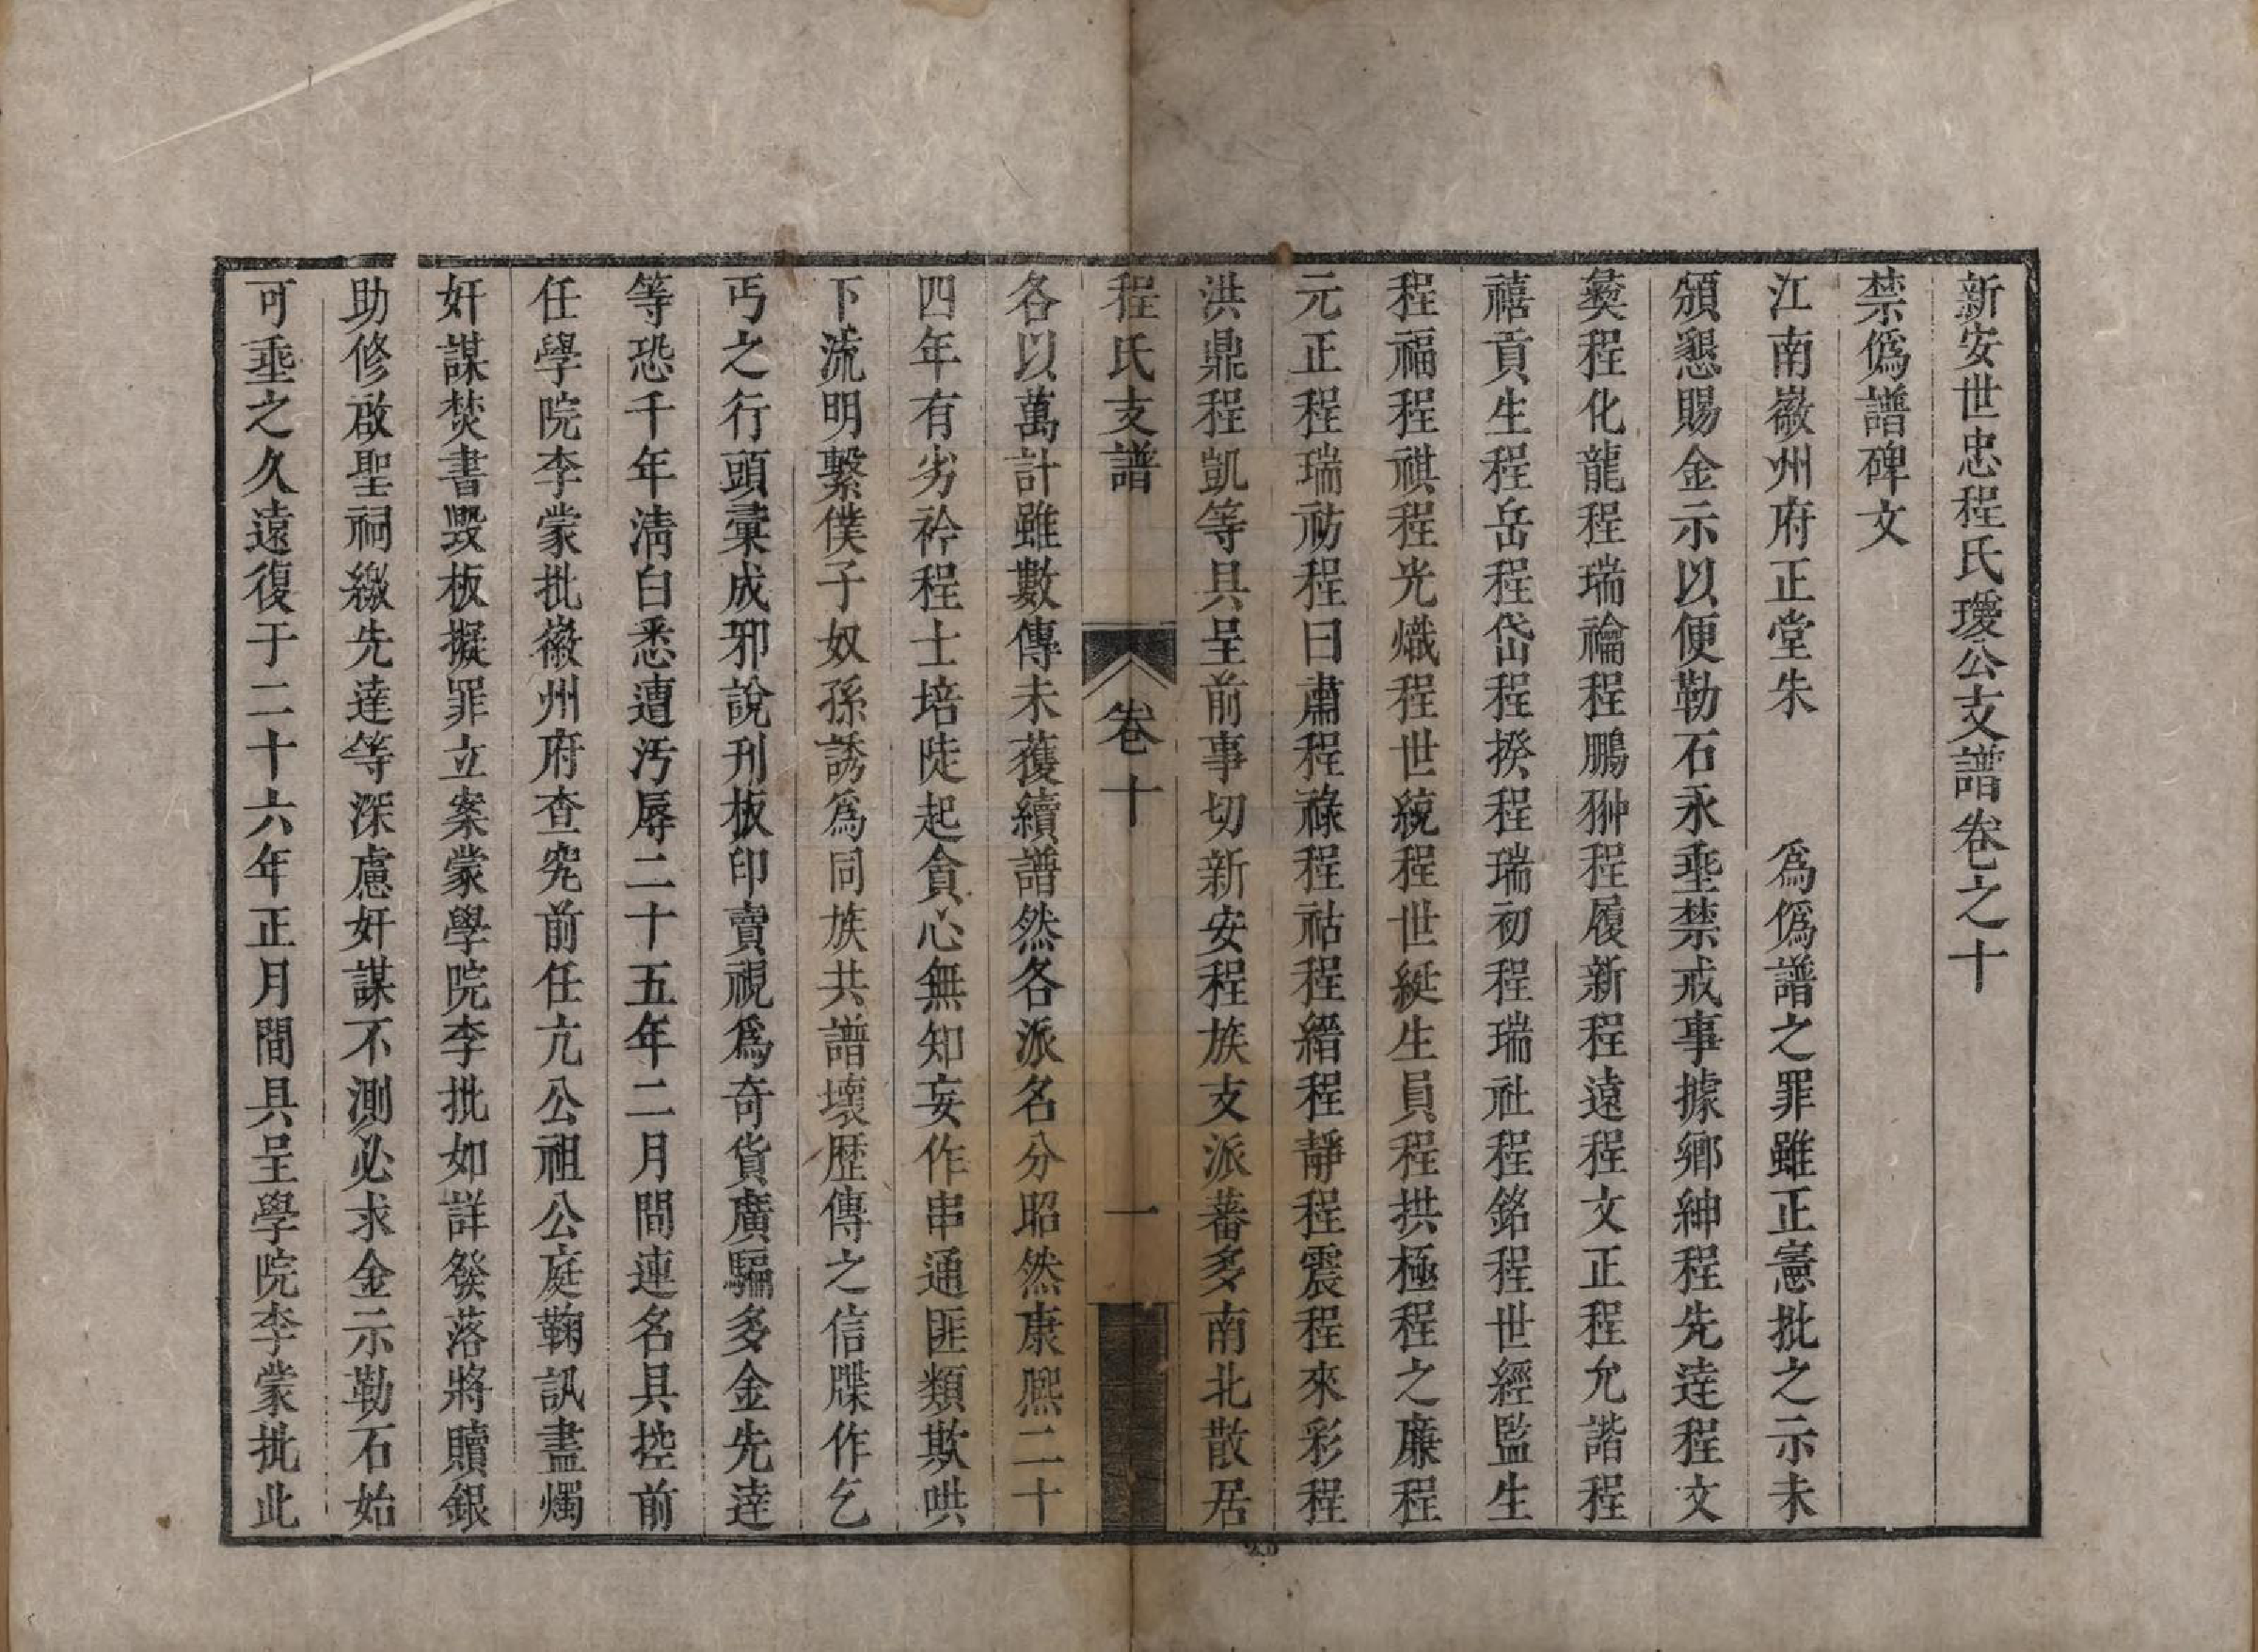 新安世忠程氏瓊公支譜卷之十
禁僞譜碑文
江南徽州府正堂朱　　爲僞譜之罪雖正憲批之示未
頒懇賜金示以便勒石永垂禁戒事據鄉紳程先達程文
彝程化龍程瑞禴程鵬翀程履新程遠程文正程允諧程
禧貢生程岳程岱程揆程瑞初程瑞社程銘程世經監生
程福程祺程光熾程世統程世綎生員程拱極程之廉程
元正程瑞祊程曰肅程祿程祜程縉程靜程震程來彩程
洪鼎程凱等具呈前事切新安程族支派蕃多南北散居
程氏支譜　卷十　一
各以萬計雖數傳未獲續譜然各派名分昭然康熙二十
四年有劣衿程士培陡起貪心無知妄作串通匪類欺哄
下流明繫僕子奴孫誘爲同族共譜壞歷傳之信牒作乞
丐之行頭彙成邪說刊板印賣視爲奇貨廣騙多金先達
等恐千年清白悉遭汚辱二十五年二月間連名具控前
任學院李蒙批徽州府查究前任亢公祖公庭鞫訊盡燭
奸謀焚書毀板擬罪立案蒙學院李批如詳發落將贖銀
助修啟聖祠繳先達等深慮奸謀不測必求金示勒石始
可垂之久遠復于二十六年正月間具呈學院李蒙批此